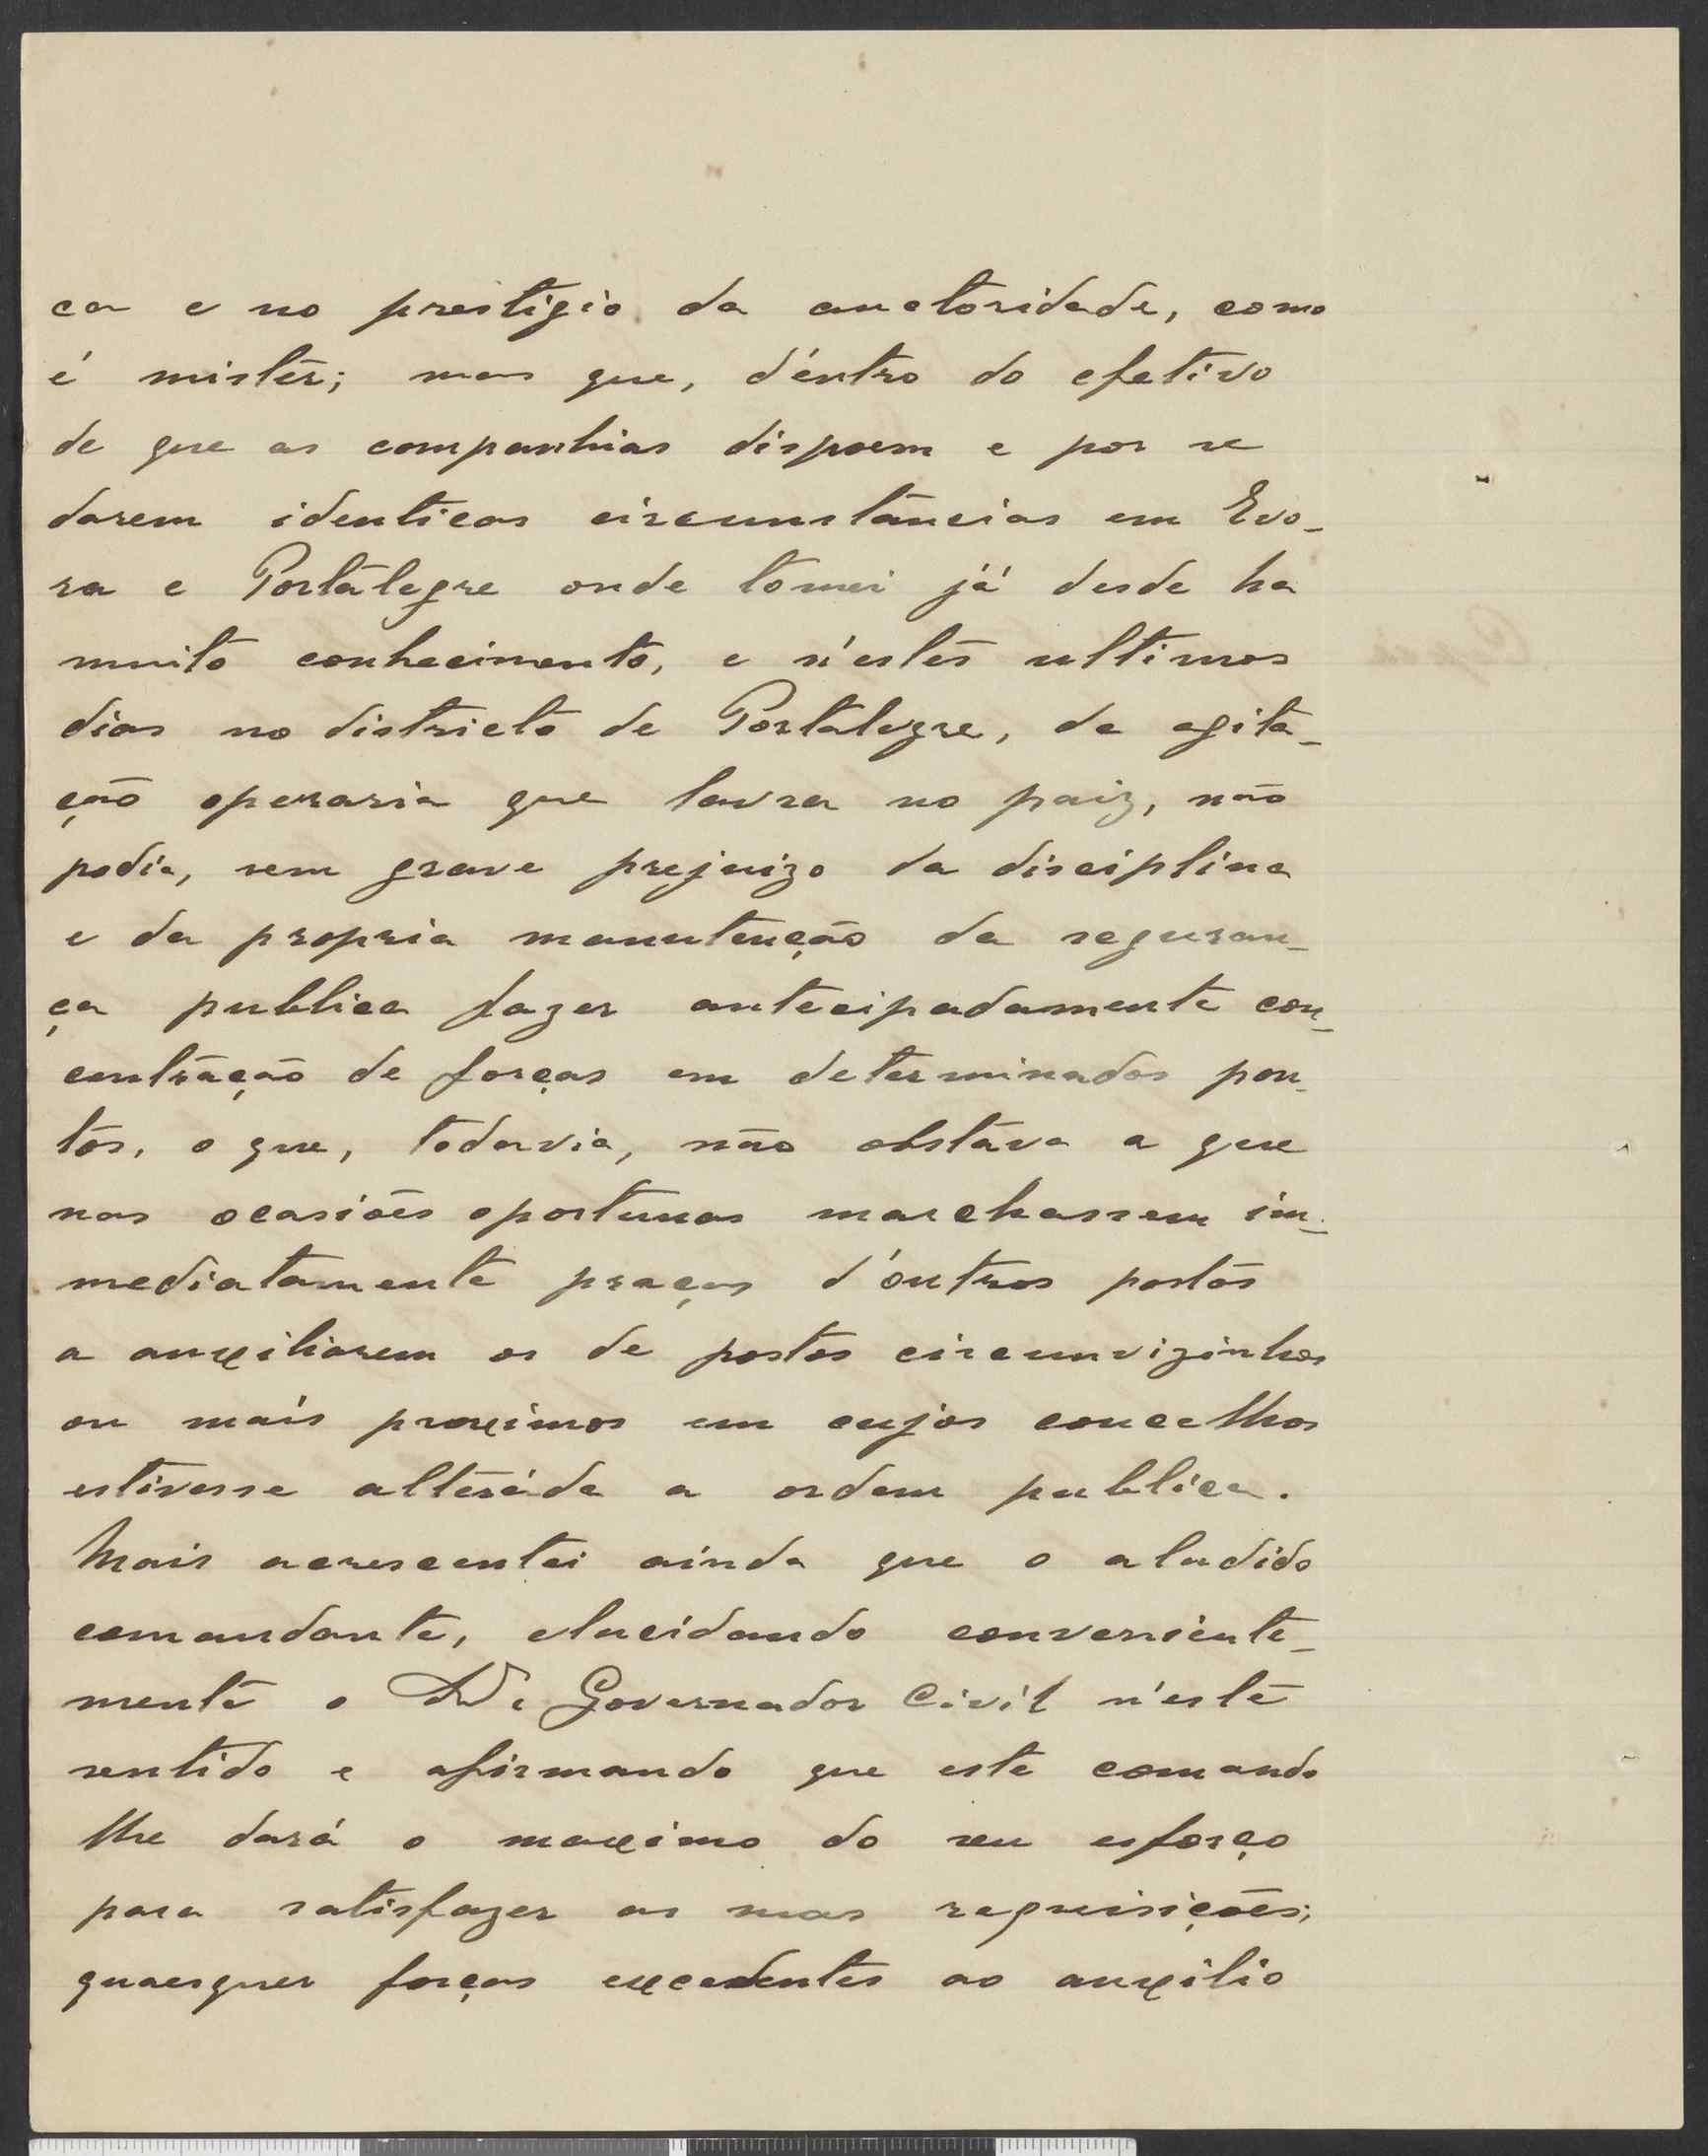 ca e no prestigio da auctoridade, como
é mistér; mas que, déntro do efetivo
de que as companhias dispoem e por se
darem identicas circunstáncias em Evo-
ra e Portalegre onde tomei já desde ha
muito conhecimento, e n'estes ultimos
dias no districto de Portalegre, da agita-
ção operaria que lavra no paiz, não
podia, sem grave prejuizo da disciplina
e da propria manutenção da seguran-
ça publica fazer antecipadamente con-
centração de forças em determinados pon-
tos, o que, todavia, não obstava a que
nas ocasiões oportunas marchassem im-
mediatamente praças d'outros postos
a auxiliarem os de postos circumvizinhos
ou mais proximos em cujos concelhos
estivesse alteráda a ordem publica.
Mais acrescentei ainda que o aludido
comandante, elucidando conveniente-
mente o Governador Civil n'este
sentido e afirmando que este comando
lhe dará o maximo do seu esforço
para satisfazer as suas requisições;
quaesquer forças excedentes ao auxilio